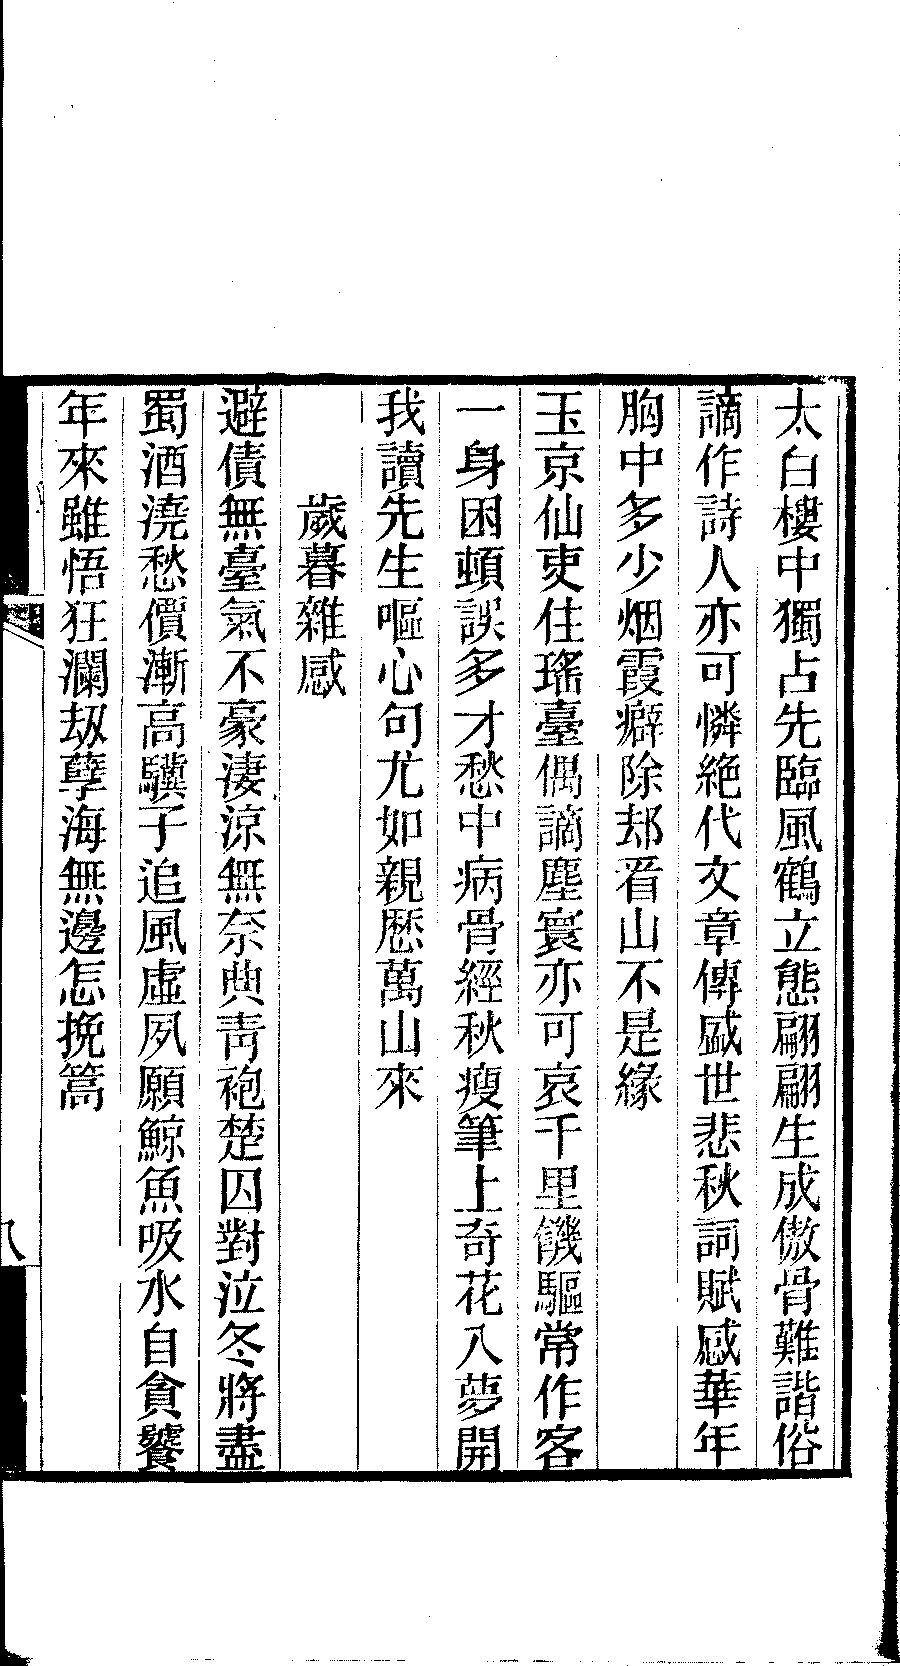 太白樓中獨占先臨風鶴立態翩翩生成傲骨難諧俗
謫作詩人亦可憐絕代文章傳盛世悲秋詞賦感華年
胸中多少烟霞癖除却看山不是緣
玉京仙吏住瑤臺偶謫塵寰亦可哀千里饑驅常作客
一身困頓誤多才愁中病骨經秋瘦筆上奇花入夢開
我讀先生嘔心句尤如親歷萬山來
歲暮雜感
避債無臺氣不豪淒涼無奈典靑袍楚囚對泣冬將盡
蜀酒澆愁價漸高驥子追風虛夙願鯨魚吸水自貪饕
年來雖悟狂瀾劫孽海無邊怎挽篙
八